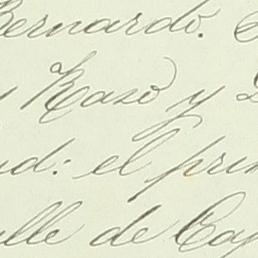 Bernardo.
y Razo y
ud: el prim
alle de Cap